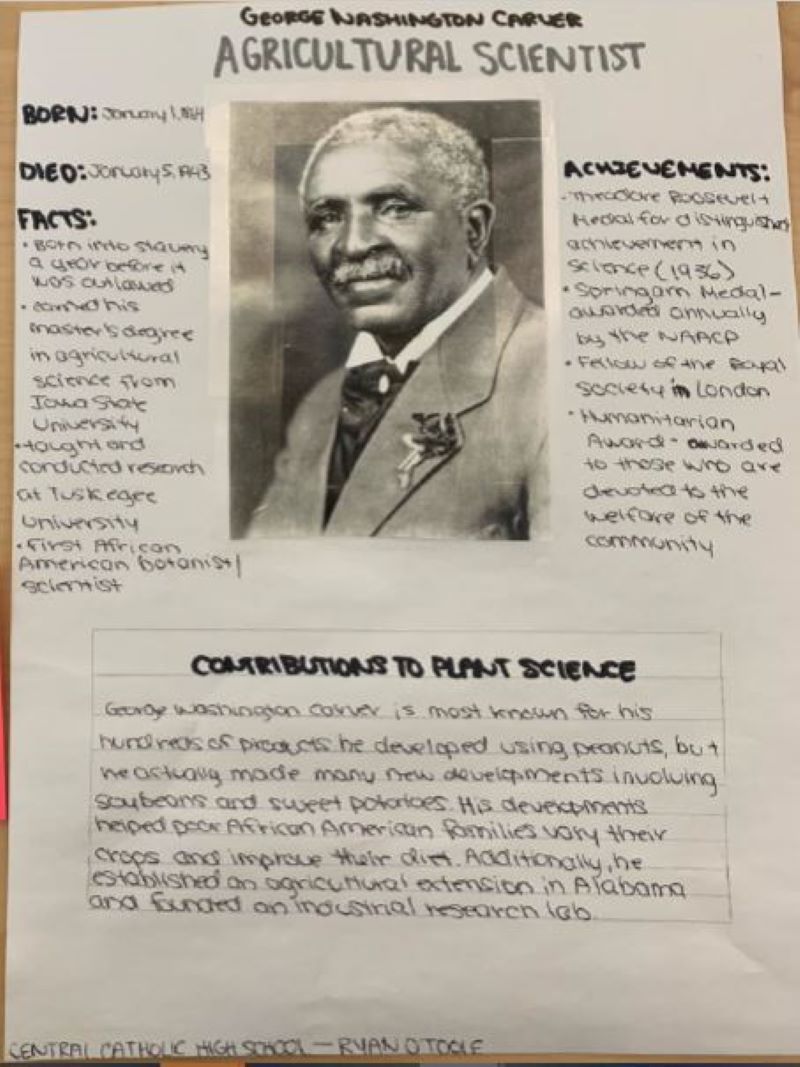 GEORGE WASHINGTON CARVER
AGRICULTURAL SCIENTIST
BORN: January 1, 1864
DIED: January 5, 1943
FACTS:
• Born into slavery
a year before it
was outlawed
• earned his
master's degree
in agricultural
science from
Iowa State
University
• taught and
conducted research
at Tuskegee
University
• First African
American botanist/
scientist
ACHIEVEMENTS:
• Theodore Roosevelt
Medal for distinguished
achievement in
science (1936)
• Springarn Medal-
awarded annually
by the NAACP
• Fellow of the Royal
Society in London
• Humanitarian
Award - awarded
to those who are
devoted to the
welfare of the
community
CONTRIBUTIONS TO PLANT SCIENCE
George Washington Carver is most known for his
hundreds of products he developed using peanuts, but
he actually made many new developments involving
soybeans and sweet potatoes. His developments
helped poor African American families vary their
crops and improve their diet. Additionally, he
established an agricultural extension in Alabama
and founded an industrial research lab.
CENTRAL CATHOLIC HIGH SCHOOL — RYAN O TOOLE